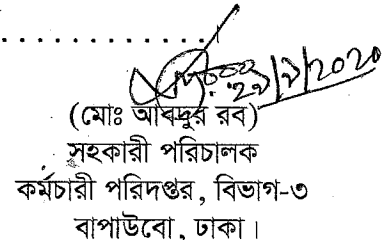 ২৯/৯/২০২০
(মোঃ আবদুর রব)
সহকারী পরিচালক
কর্মচারী পরিদপ্তর, বিভাগ-৩
বাপাউবো, ঢাকা।